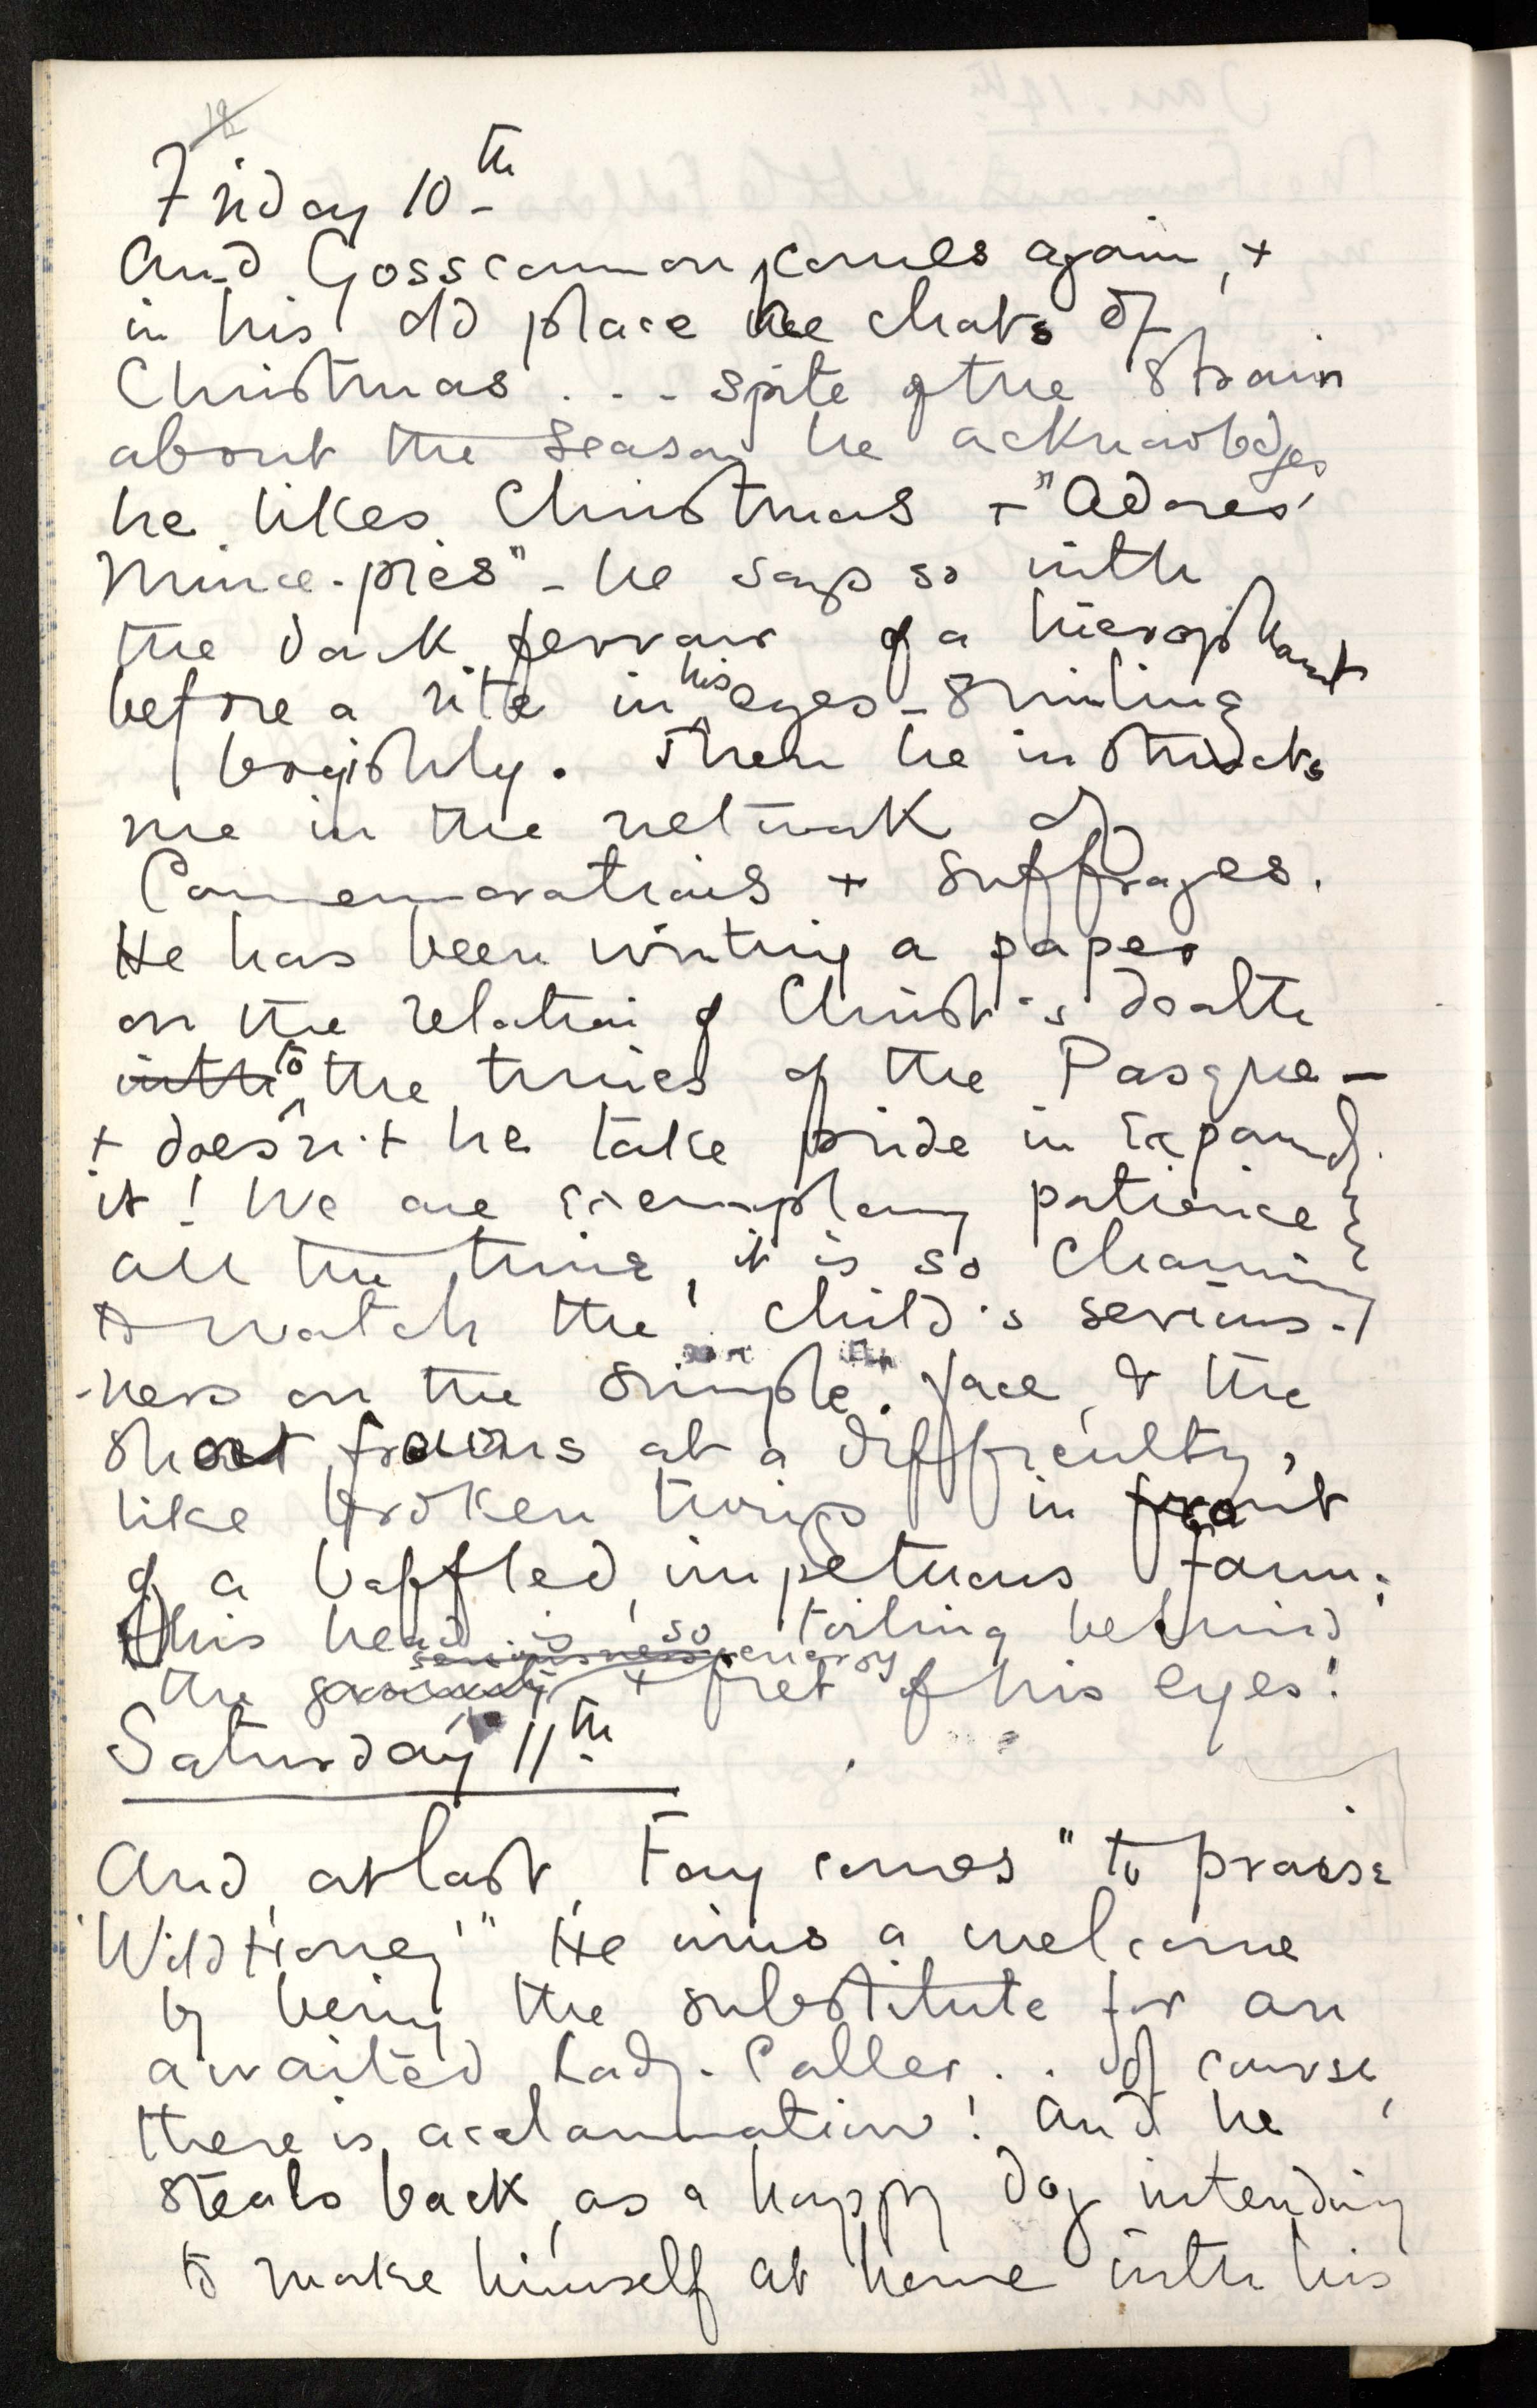 Friday 10th
And Gosscannon comes again, +
in his old place he chats of
Christmas . . . spite of the strain
about the season he acknowledges
he likes Christmas + "Adores
Mince-pies" – he says so with
the dark fervour of a hierophant
before a rite in his eyes – smiling
boyishly. Then he instructs
me in the network of
Commemorations + Suffrages.
He has been writing a paper
on the relation of Christ's death
with to the times of the Pasque –
+ doesn't he take pride in expound.
it! We are exemplary patience
all the time, it is so charming
to watch the child's serious-
-ness on the simple face, & the
short frowns at a difficulty,
like broken twigs in front
of a baffled, impetuous Faun:
this head is so toiling behind
seriousness energy
the + fret of his eyes!
Saturday 11th
And, at last, Fay comes "to praise
'Wild Honey'" He wins a welcome
by being the substitute for an
awaited Lady-Caller . . of course,
there is acclammation! And he
steals back, as a happy dog intending
to make himself at home with his